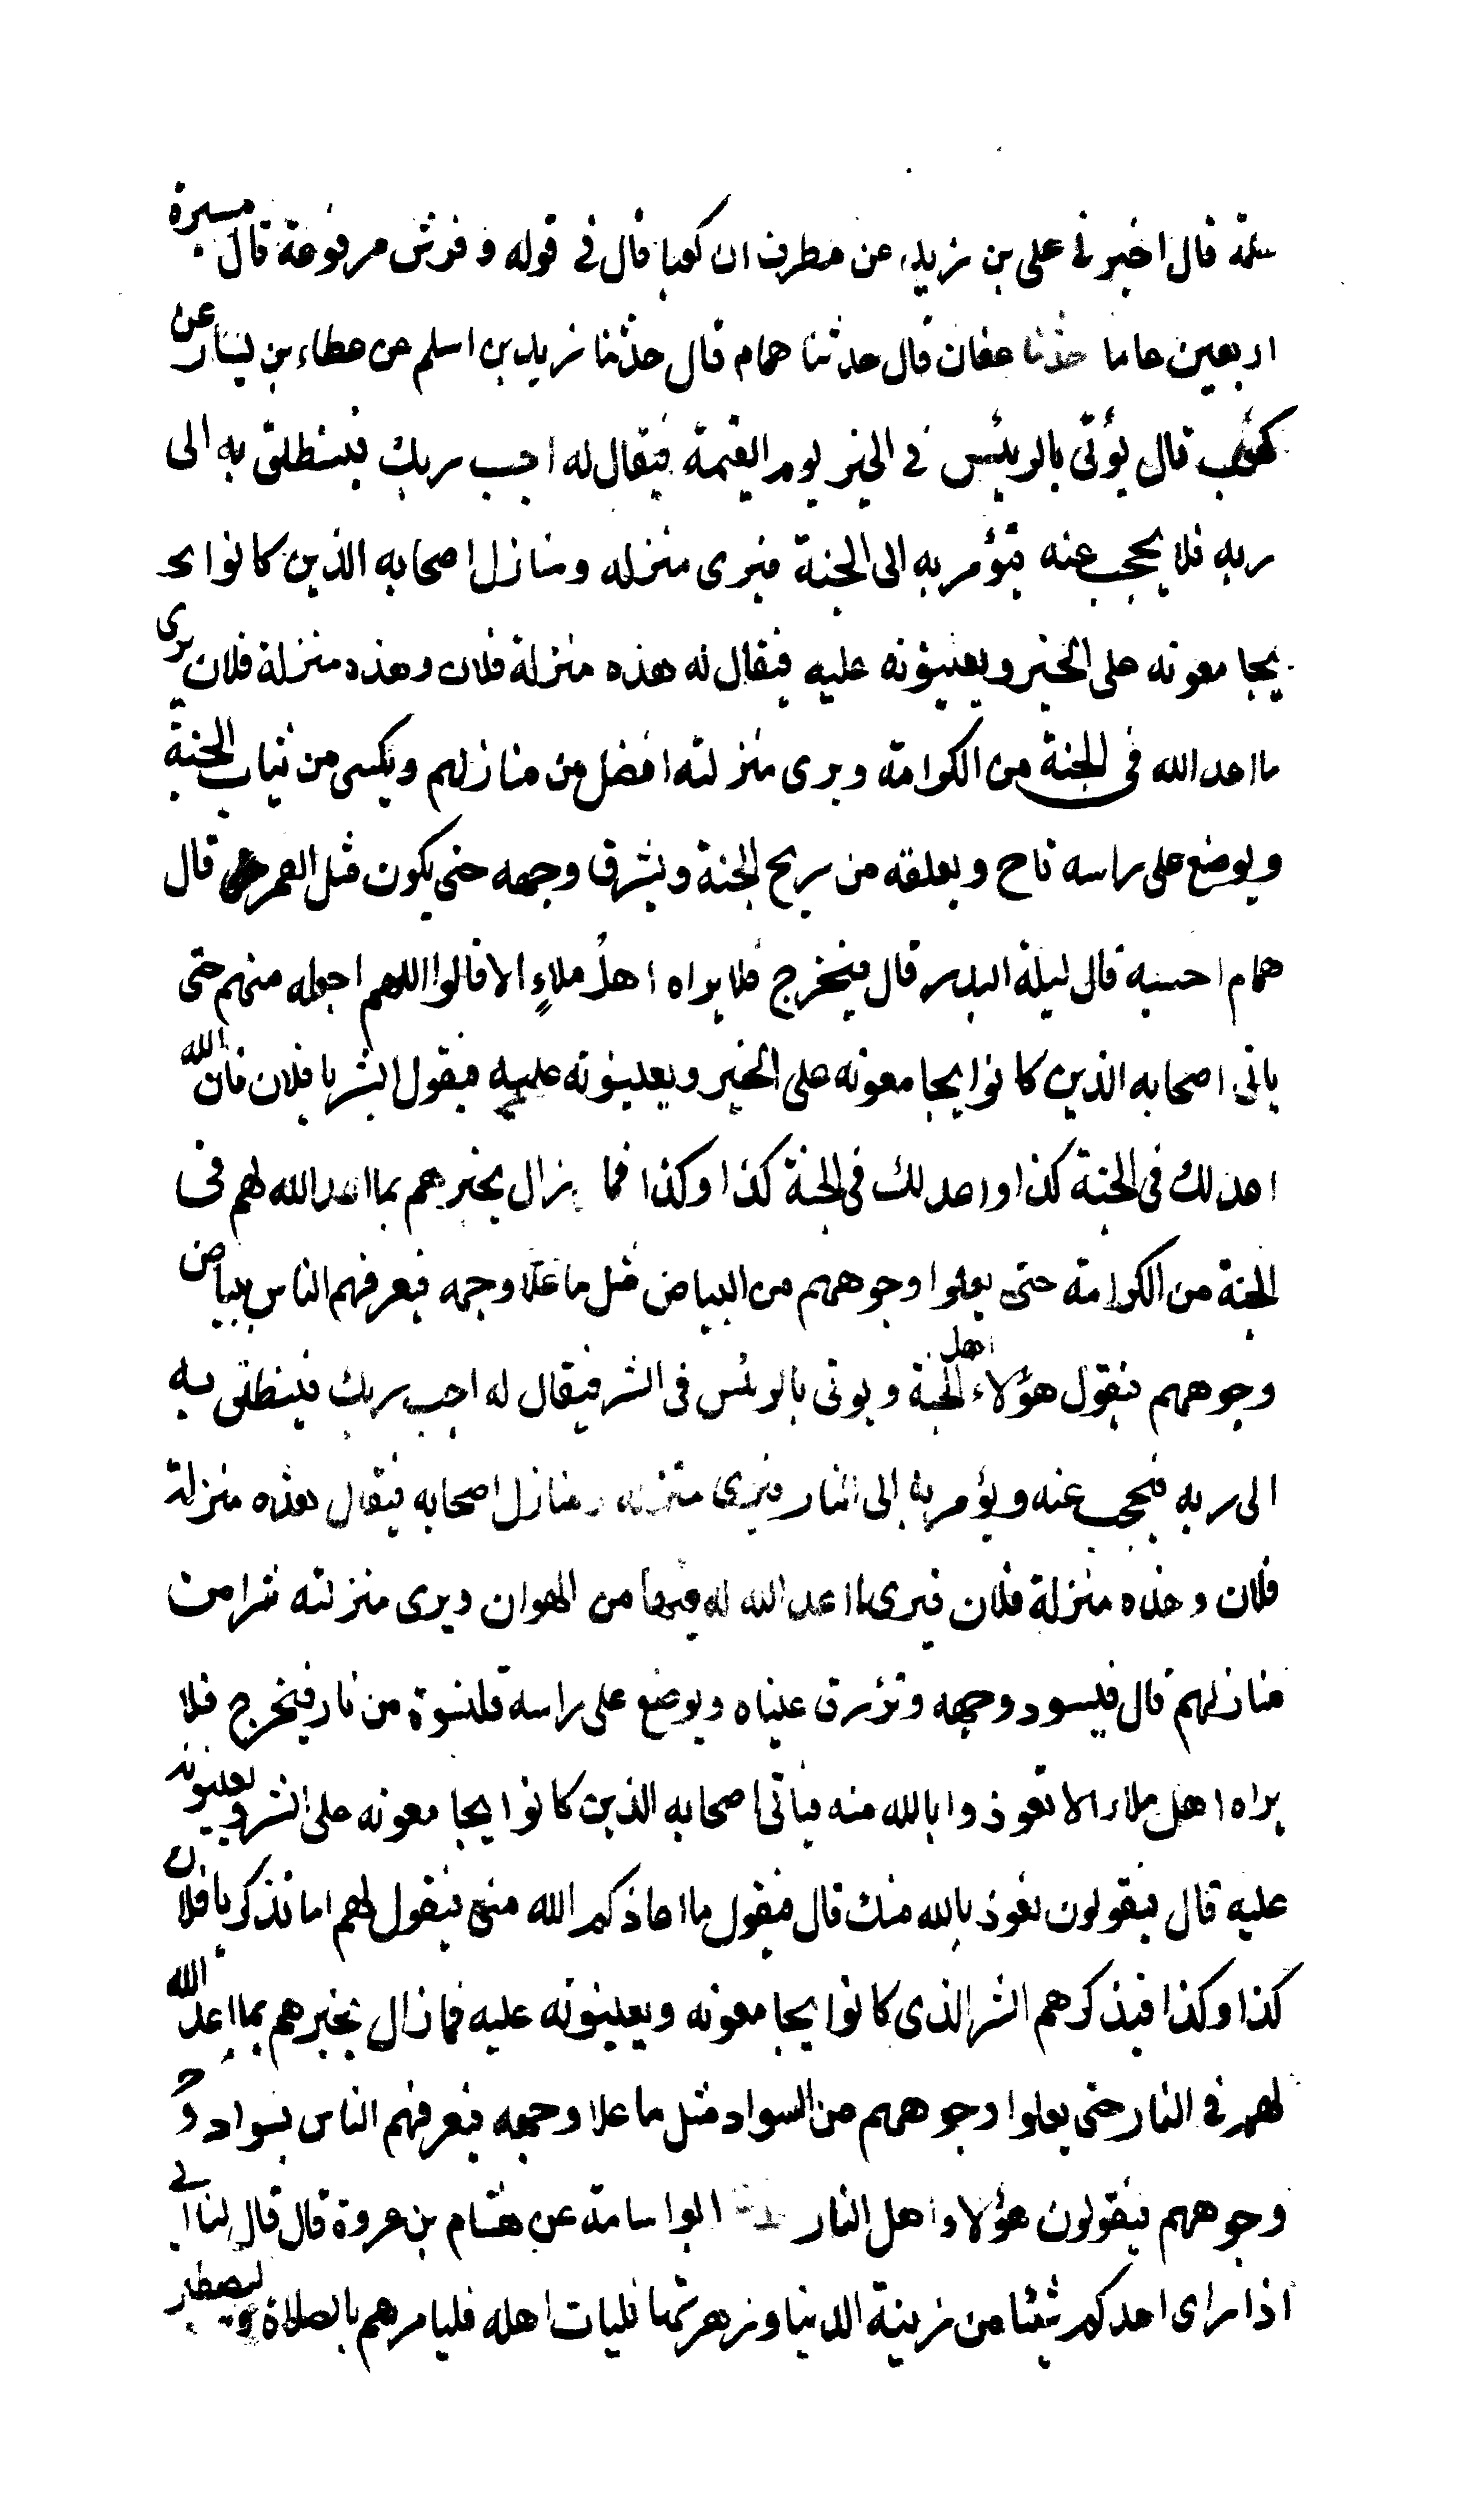 سلمة قال اخبرني على بن زيد عن مطرف ان كعبا قال في قوله وفرش مرفوعة قال مسيرة
اربعين عاما حدثنا عفان قال حدثنا همام قال حدثنا زيد بن اسلم عن عطاء بن يسار عن
كعب قال يؤتى بالرئيس في الخير يوم القيمة فيقال له اجب ربك فينطلق به الى
ربه فلا يحجب عنه فيؤمر به الى الجنة فيرى منزله ومنازل اصحابه الذين كانوا يجـ
يجامعونه على الخير ويعينونه عليه فيقال له هذه منزلة فلان وهذه منزلة فلان يرى
ما اعد الله في الجنة من الكرامة ويرى منزلته افضل من منازلهم ويكسى من ثياب الجنة
ويوضع على راسه تاج ويعلقه من ريح الجنة ويشرق وجهه حتى يكون مثل القمر قال
همام احسبه قال ليلة البدر قال فيخرج فلا يراه اهل ملاءٍ الا قالوا اللهم اجعله منهم حتى
ياتى اصحابه الذين كانوا يجامعونه على الخير ويعينونه عليه فيقول ابشر يا فلان فان الله
اعد لك في الجنة كذا واعد لك في الجنة كذا وكذا فما يزال يخبرهم بما اعد الله لهم في
الجنة من الكرامة حتى يعلوا وجوههم من البياض مثل ما علا وجهه فيعرفهم الناس ببياض
وجوههم فيقول هؤلاء اهل الجنة ويوتى بالرئس في الشر فيقال له اجب ربك فينطلق به
الى ربه فيحجب عنه ويؤمر به الى النار فيرى منزله ومنازل اصحابه فيقال هذه منزلة
فلان وهذه منزلة فلان فيرى ما اعد الله له فيها من الهوان ويرى منزلته شرا من
منازلهم قال فيسود وجهه وتزرق عيناه ويوضع على راسه قلنسوة من نار فيخرج فلا
يراه اهل ملاء الا تعوذوا بالله منه فياتى اصحابه الذين كانوا يجامعونه على الشر ويعينونه
عليه قال فيقولون نعوذ بالله منك قال فيقول ما اعاذكم الله مني فيقول لهم اما تذكر يا فلان
كذا وكذا فيذكرهم الشر الذى كانوا يجامعونه ويعينونه عليه فما زال يخبرهم بما اعد الله
لهم في النار حتى يعلوا وجوههم من السواد مثل ما علا وجهه فيعرفهم الناس بسواد و
وجوههم فيقولون هؤلاء اهل النار ابو اسامة عن هشام بن عروة قال قال لنا ابي
اذا راى احدكم شيئا من زينة الدنيا وزهرتها فليات اهله فليامرهم بالصلاة وليصطبر